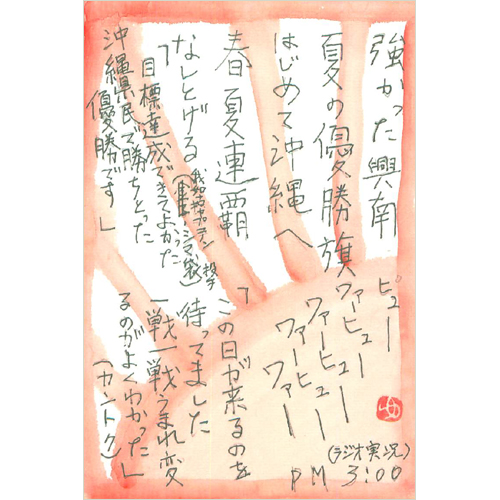 強かった興南
夏の優勝旗
はじめて沖縄へ
春夏連覇
なしとげる
「目標達成できてよかった
沖縄県民で勝ちとった
優勝です」
ピュー
ヴァーヒュー
ヴァーヒュー
ヴァーヒュー
ヴァー
「この日が来るのを
待ってました
一戦一戦うまれ変
るのがよくわかった」
(カントク)
(ラジオ実況)
PM 3:00